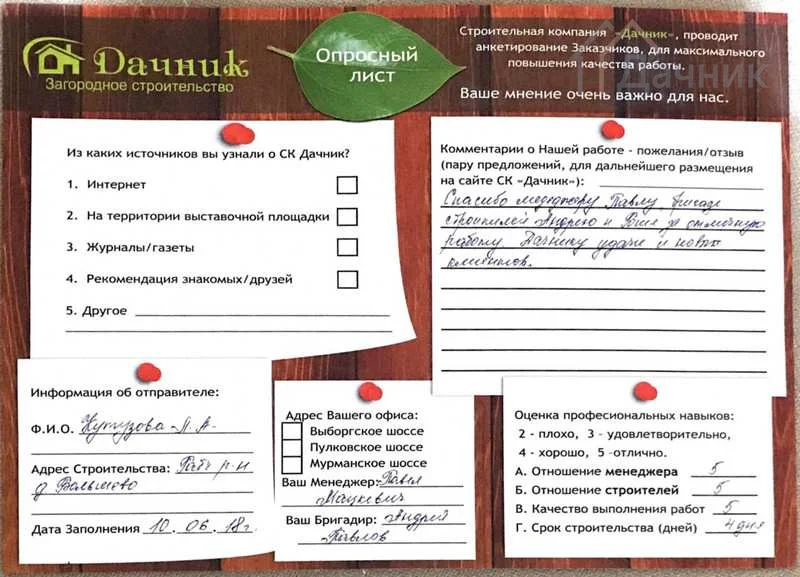 Дачник
Загородное строительство
Опросный
лист
Строительная компания «Дачник», проводит
анкетирование Заказчиков, для максимального
повышения качества работы.
Дачник
Ваше мнение очень важно для нас.
Из каких источников вы узнали о СК Дачник?
1. Интернет
2. На территории выставочной площадки
3. Журналы/газеты
4. Рекомендация знакомых/друзей
5. Другое
Комментарии о Нашей работе - пожелания/отзыв
(пару предложений, для дальнейшего размещения
на сайте СК «Дачник»):
Спасибо менеджеру Павлу, бригаде
строителей Андрею и за отличную
работу. Дачнику удачи и новых
клиентов.
Информация об отправителе:
Ф.И.О. Кутузова Л.А.
Адрес Строительства: р-н
д
Дата Заполнения 10.06.18г.
Адрес Вашего офиса:
Выборгское шоссе
Пулковское шоссе
Мурманское шоссе
Ваш Менеджер: Павел
Мацкевич
Ваш Бригадир: Андрей
Павлов
Оценка професиональных навыков:
2 - плохо, 3 - удовлетворительно,
4 - хорошо, 5 -отлично.
А. Отношение менеджера 5
Б. Отношение строителей 5
В. Качество выполнения работ 5
Г. Срок строительства (дней) 4 дня